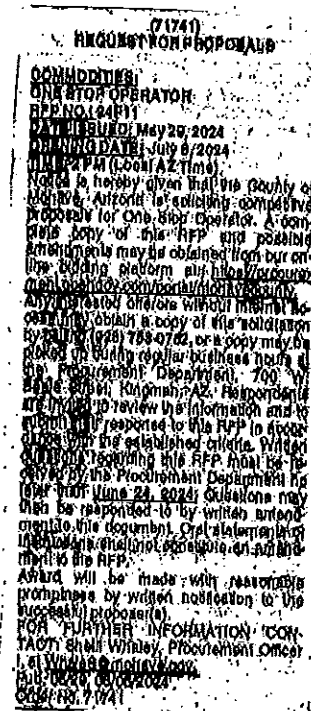 (71741)
REQUEST FOR PROPOSALS
COMMODITIES:
ONE STOP OPERATOR
RFP NO.
DATE ISSUED: May 29, 2024
OPENING DATE: July 2024
TIME: 2 PM (Local AZ Time)
Notice is hereby given that the County of
Mohave, Arizona is soliciting competitive
proposals for One Stop Operator. A com-
plete copy of this RFP and possible
amendments may be obtained from our on-
line bidding platform
Any interested offerors without internet ac-
cess may obtain a copy of this solicitation
by calling (928) or a copy may be
picked up during regular business hours at
the Procurement Department, 700 W
Beale Street, Kingman, AZ. Respondents
are invited to review the information and to
submit response to this RFP in accor-
dance with the established criteria. Written
questions regarding this RFP must be re-
ceived by the Procurement Department no
later than June 24, 2024. Questions may
then be responded to by written amend-
ment to this document. Oral statements or
instructions shall not constitute an amend-
ment to the RFP.
Award will be made with reasonable
promptness by written notification to the
successful proposer(s).
FOR FURTHER INFORMATION CON-
TACT: Procurement Officer
Order No. 71741